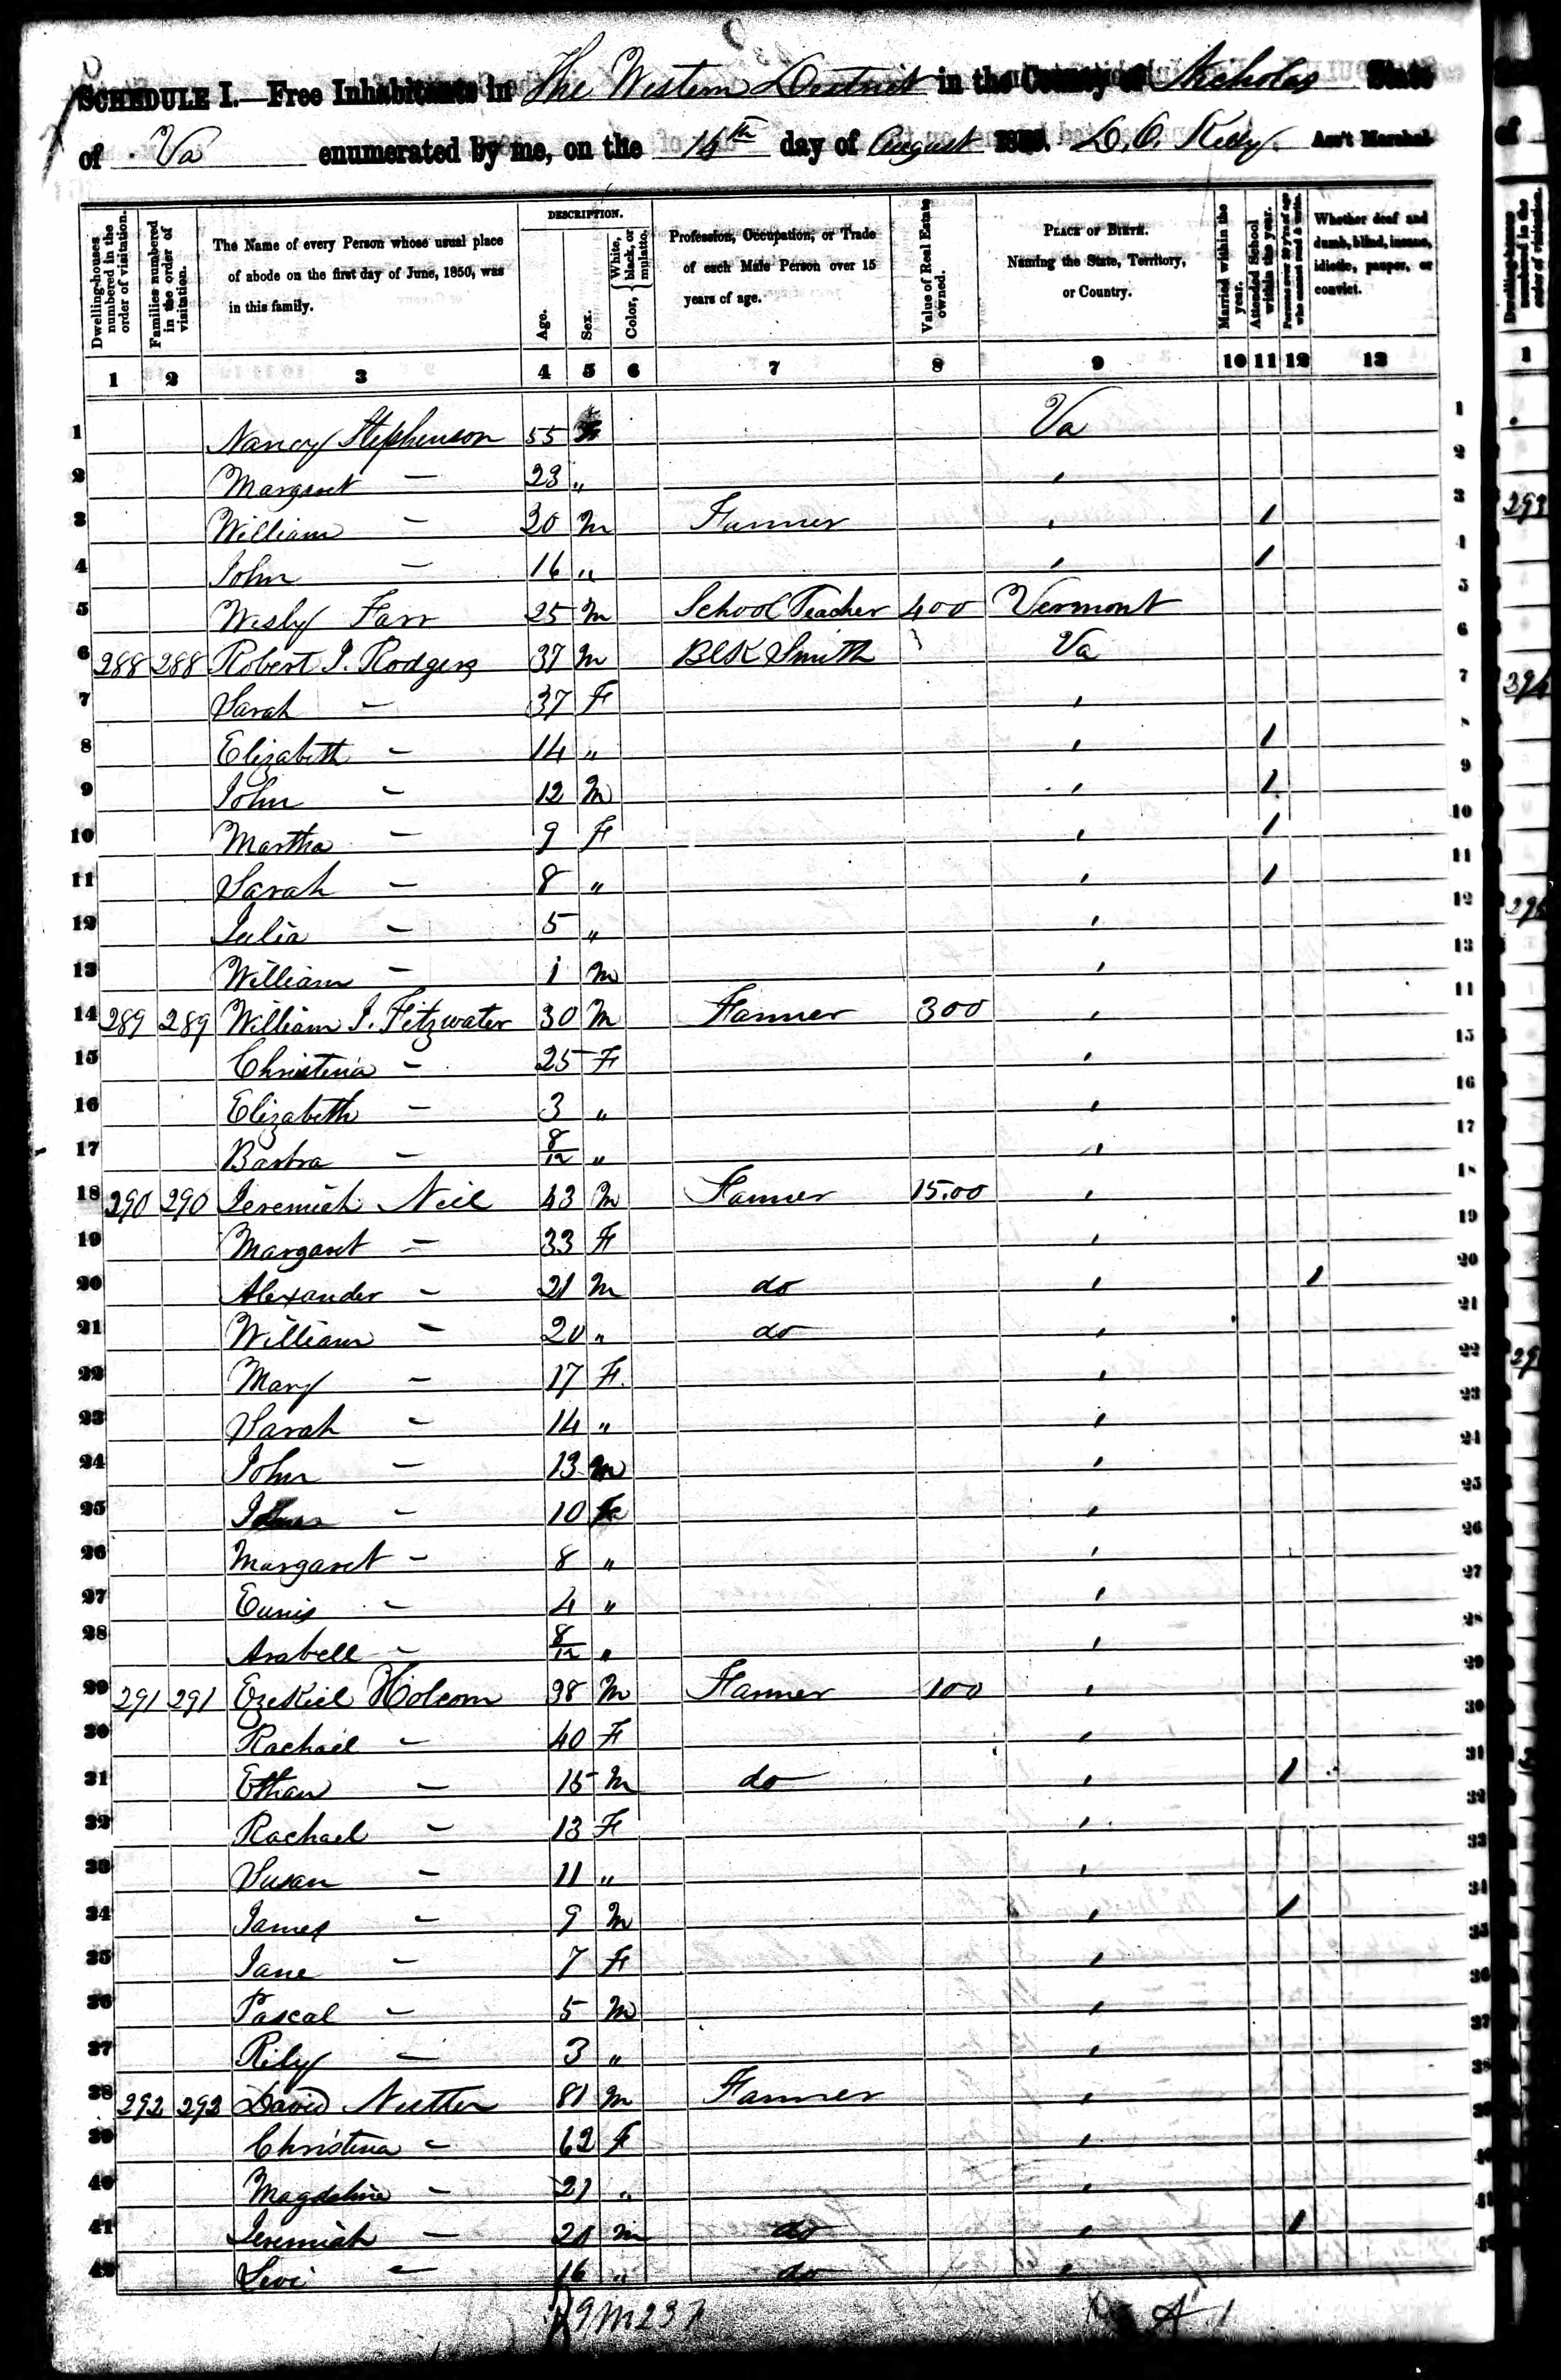 SCHEDULE I.—Free Inhabitants in The Western District in the County of Nicholas State
of Va enumerated by me, on the 16th day of August 1850. Ass't Marshal
Dwelling-houses numbered in the order of visitation.
Families numbered in the order of visitation.
The Name of every Person whose usual place of abode on the first day of June, 1850, was in this family.
DESCRIPTION.
Age.
Sex.
Color, White, black, or mulatto.
Profession, Occupation, or Trade of each Male Person over 15 years of age.
Value of Real Estate owned.
PLACE OF BIRTH.
Naming the State, Territory, or Country.
Married within the year.
Attended School within the year.
Persons over 20 y'rs of age who cannot read & write.
Whether deaf and dumb, blind, insane, idiotic, pauper, or convict.
1 2 3 4 5 6 7 8 9 10 11 12 13
1 Nancy Stephenson 55 F Va 1
2 Margaret — 23 " ' 2
3 William — 20 M Farmer ' 1 3
4 John — 16 " ' 1 4
5 Wesly Farr 25 M School Teacher 400 Vermont 5
6 288 288 Robert J. Rodgers 37 M Blk Smith Va 6
7 Sarah — 37 F ' 7
8 Elizabeth — 14 " ' 1 8
9 John — 12 M ' 1 9
10 Martha — 9 F ' 1 10
11 Sarah — 8 " ' 1 11
12 Julia — 5 " ' 12
13 William — 1 M ' 13
14 289 289 William J. Fitzwater 30 M Farmer 300 ' 14
15 Christina — 25 F ' 15
16 Elizabeth — 3 " ' 16
17 Barbra — 8/12 " ' 17
18 290 290 Jeremiah Neil 43 M Farmer 15.00 ' 18
19 Margaret — 33 F ' 19
20 Alexander — 21 M do ' 1 20
21 William — 20 " do ' 21
22 Mary — 17 F. ' 22
23 Sarah — 14 " ' 23
24 John — 13 M ' 24
25 — 10 F ' 25
26 Margaret — 8 " ' 26
27 Eunis — 4 " ' 27
28 Arabell — 8/12 " ' 28
29 291 291 Ezekiel Holcom 38 M Farmer 100 ' 29
30 Rachael — 40 F ' 30
31 Ethan — 15 M do ' 1 31
32 Rachael — 13 F ' 32
33 Susan — 11 " ' 33
34 James — 9 M ' 1 34
35 Jane — 7 F ' 35
36 Pascal — 5 M ' 36
37 Rily — 3 " ' 37
38 292 292 David Nutter 81 M Farmer ' 38
39 Christina — 62 F ' 39
40 Magdaline — 21 " ' 40
41 Jeremiah — 20 M do ' 1 41
42 Levi — 16 " do '